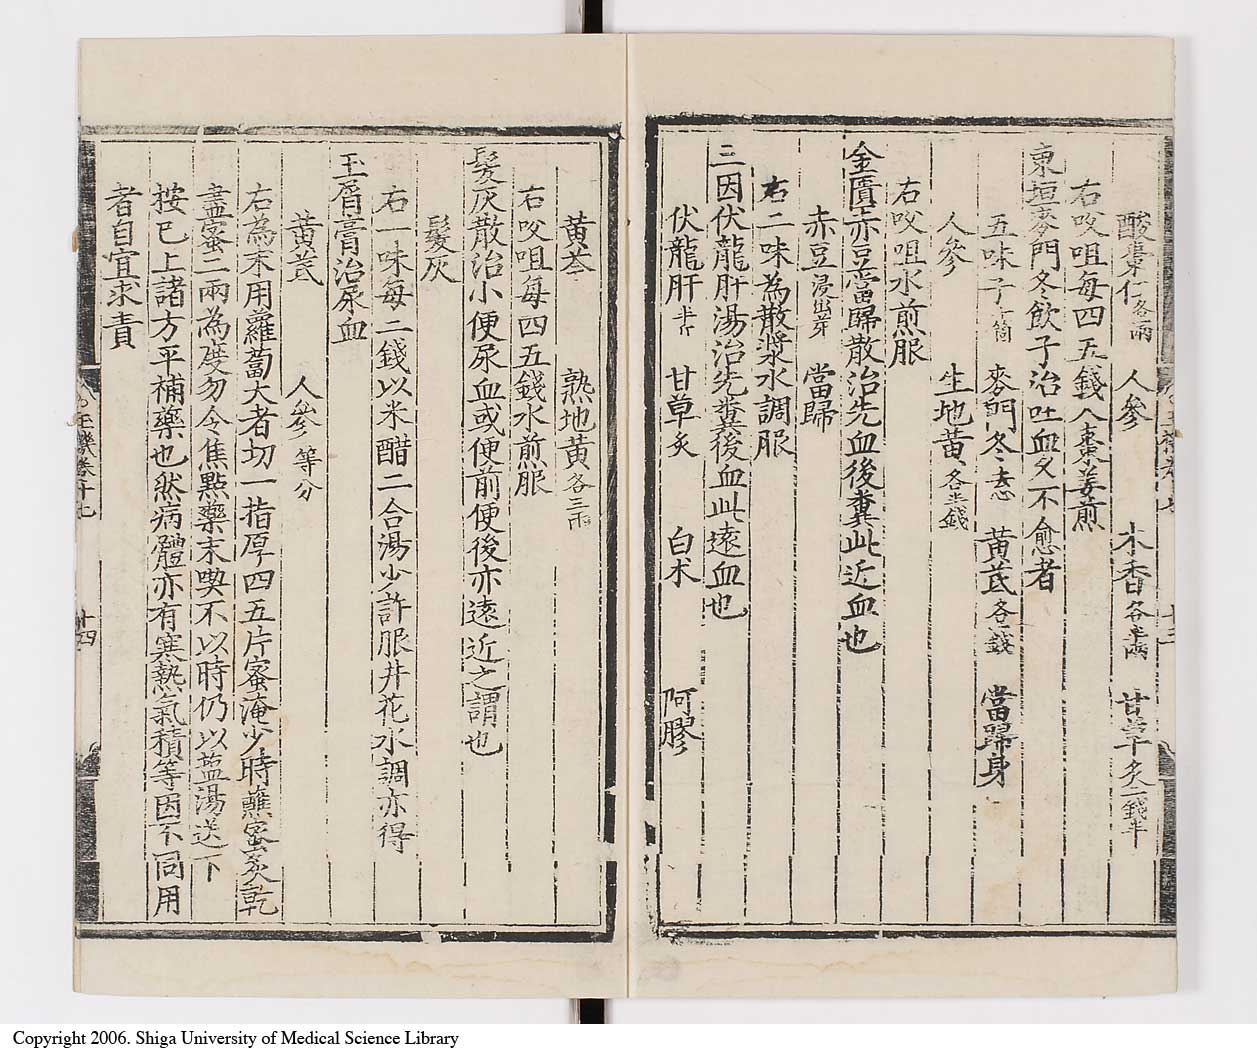 酸棗仁各一兩　人參　木香各半兩　甘草炙一錢半
右㕮咀每四五錢入棗姜煎
東垣麥門冬飲子治吐血久不愈者
五味子十箇　麥門冬去心　黃芪各一錢　當歸身
人參　生地黃各半錢
右㕮咀水煎服
金匱赤豆當歸散治先血後糞此近血也
赤豆浸出芽　當歸
右二味為散漿水調服
三因伏龍肝湯治先糞後血此遠血也
伏龍肝半斤　甘草炙　白朮　阿膠
黃芩　熟地黃各三兩
右㕮咀每四五錢水煎服
髮灰散治小便尿血或便前便後亦遠近之謂也
髮灰
右一味每二錢以米醋二合湯少許服井花水調亦得
玉屑膏治尿血
黃芪　人參等分
右為末用蘿蔔大者切一指厚四五片蜜淹少時蘸蜜炙乾
盡蜜二兩為度勿令焦點藥末喫不以時仍以塩湯送下
按已上諸方平補藥也然病體亦有寒熱氣積等因不同用
者自宜求責
玉機卷十七
十四
Copyright 2006. Shiga University of Medical Science Library